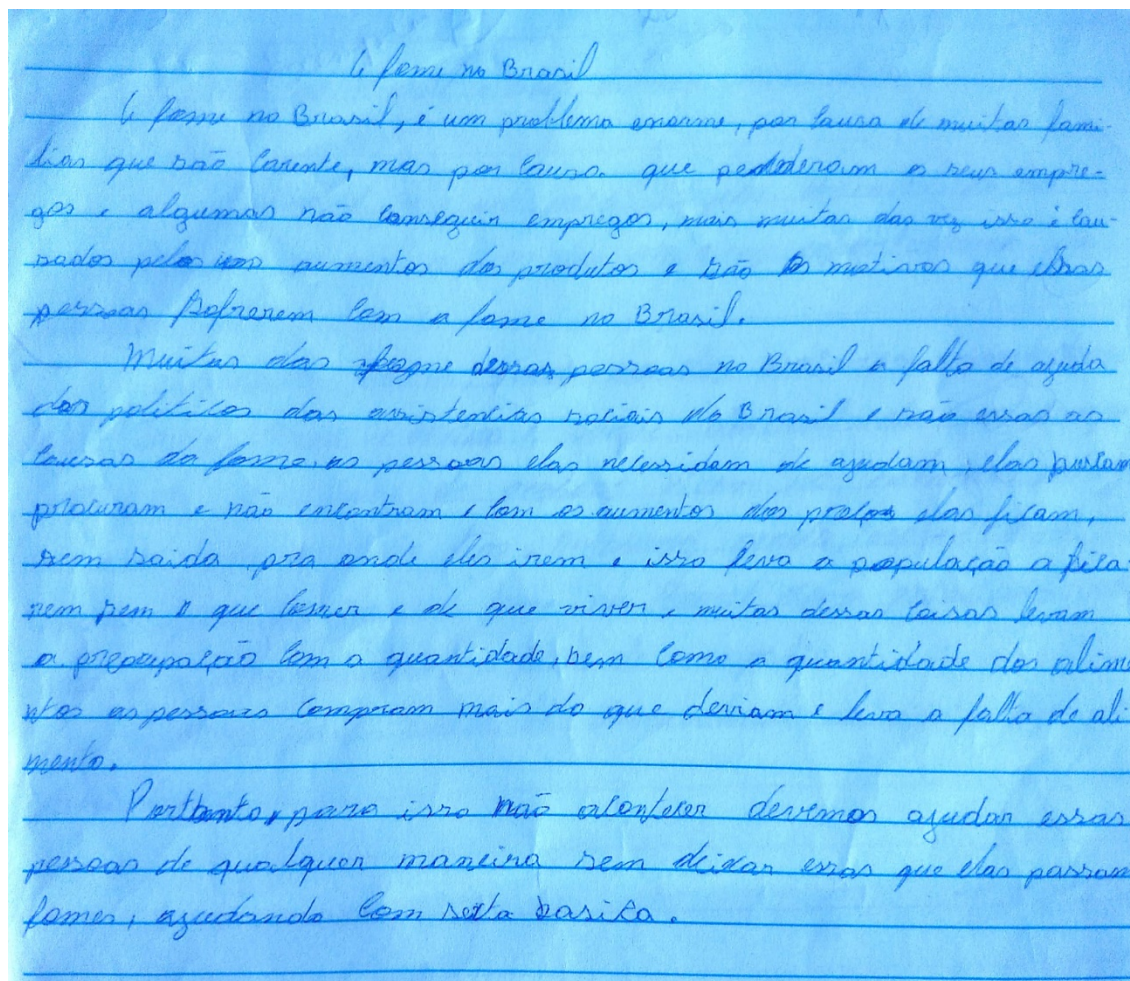 A fome no Brasil
A fome no Brasil, é um problema enorme, por causa de muitas fami-
lias que são carente, mas por causa que perderam o seus empre-
gos e algumas não conseguir empregos, mais muitas das vez isso é cau-
sados pelos aumentos dos produtos e são os motivos que essas
pessoas sofrerem com a fome no Brasil.
Muitas das fome dessas pessoas no Brasil a falta de ajuda
dos politicos das assistencias sociais do Brasil e são essas as
causas da fome. as pessoas elas necessidam de ajudam, elas
procuram e não encontram e com os aumentos dos preços elas ficam,
sem saida pra onde eles irem e isso leva a população a fica-
rem sem o que comer e de que viver e muitas dessas coisas levam
a preocupação com a quantidade, bem como a quantidade dos alime
ntos as pessoas compram mais do que deviam e leva a falta de ali
mento.
Portanto, para isso não acontecer devemos ajudar essas
pessoas de qualquer maneira sem deixar essas que elas passam
fomes, ajudando com sexta basica.